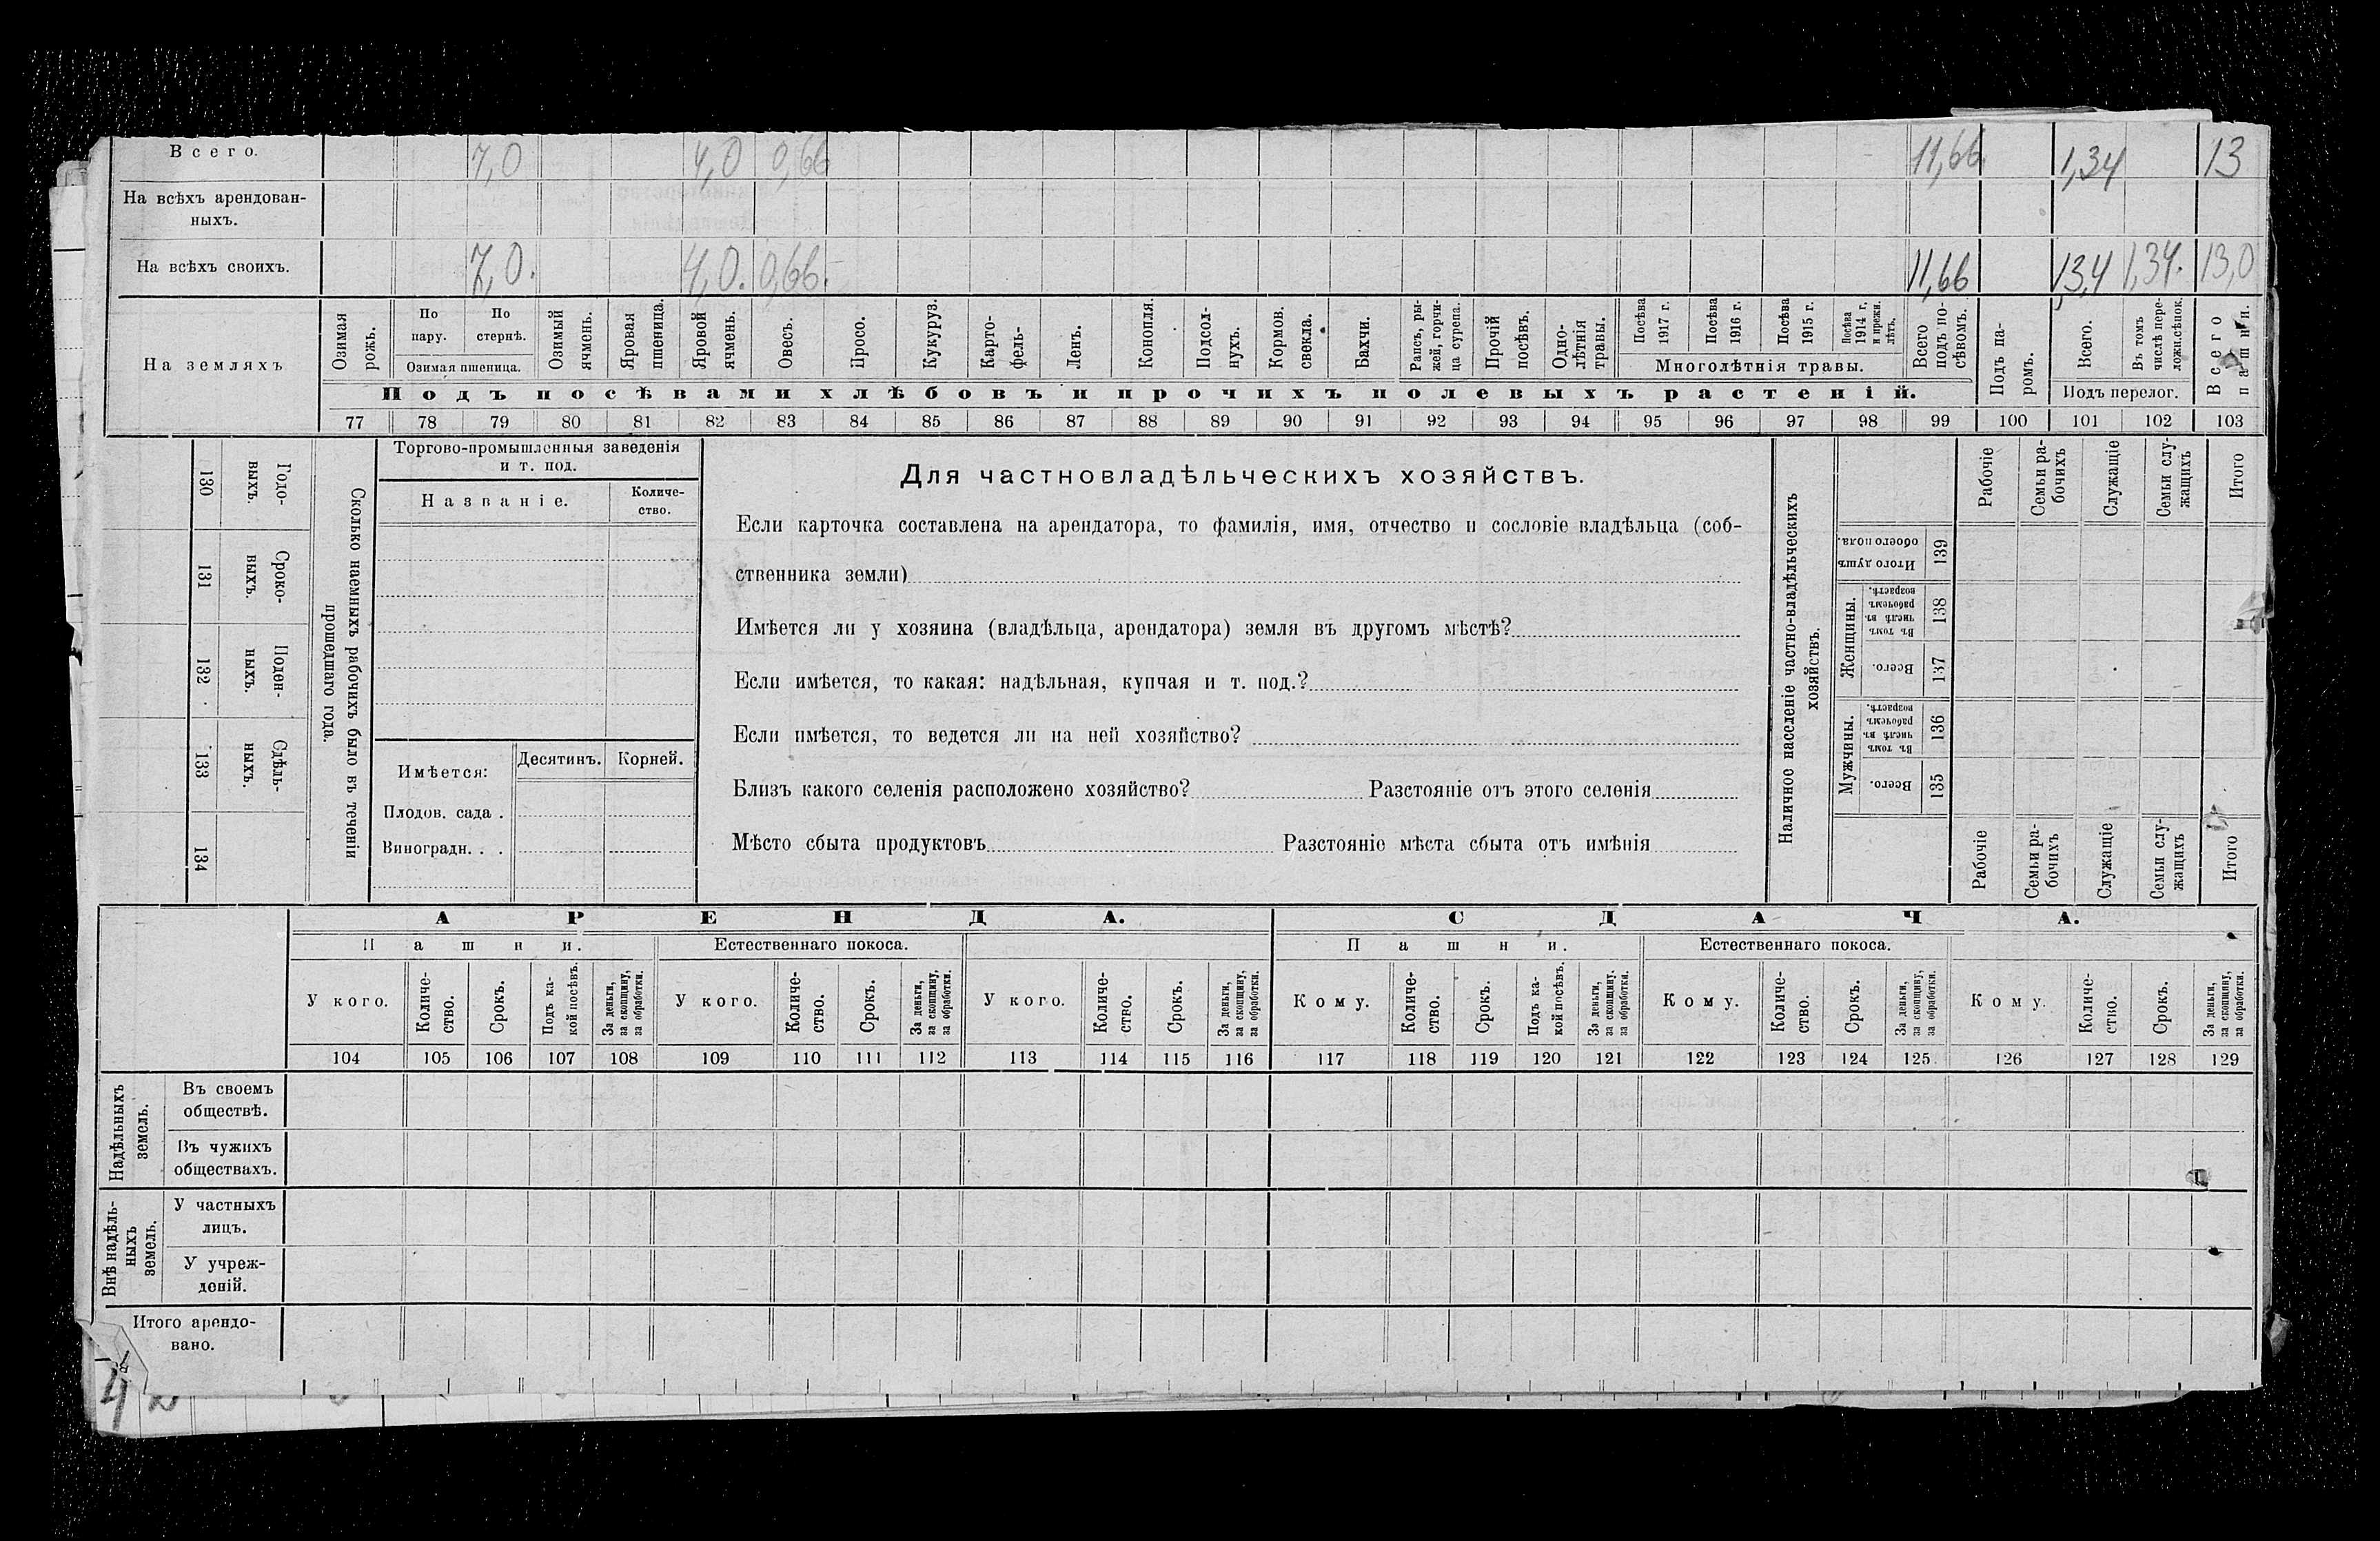 Всего. 7,0 4,0 0,66 11,66 1,34 13
На всѣхъ арендован-
ныхъ.
На всѣхъ своихъ. 7,0. 4,0. 0,66. 11,66 1,34 1,34. 13,0
На земляхъ
Озимая
рожь.
По
пару.
По
стернѣ.
Озимая пшеница.
Озимый
ячмень.
Яровая
пшеница.
Яровой
ячмень.
Овесъ.
Просо.
Кукуруз.
Карто-
фель-
Ленъ.
Конопля.
Подсол-
нухъ.
Кормов.
свекла.
Бахчи.
Рапсъ, ры-
жей, горчи-
ца сурепа.
Прочій
посѣвъ.
Одно-
лѣтнія
травы.
Посѣва
1917 г.
Посѣва
1916 г.
Посѣва
1915 г.
Посѣва
1914 г.
и прежн.
лѣтъ.
Многолѣтнія травы.
Всего
подъ по-
сѣвомъ.
Подъ па-
ромъ.
Всего.
Въ томъ
числѣ пере-
ложн.сѣнок.
Подъ перелог.
Всего
пашни.
Подъ посѣвами хлѣбовъ и прочихъ полевыхъ растеній.
77 78 79 80 81 82 83 84 85 86 87 88 89 90 91 92 93 94 95 96 97 98 99 100 101 102 103
Сколько наемныхъ рабочихъ было въ теченіи
прошедшаго года.
Годо-
выхъ.
130
Сроко-
ныхъ.
131
Поден-
ныхъ.
132
Сдѣль-
ныхъ.
133
134
Торгово-промышленныя заведенія
и т. под.
Названіе.
Количе-
ство.
Имѣется:
Десятинъ. Корней.
Плодов. сада .
Виноградн. . .
Для частновладѣльческихъ хозяйствъ.
Если карточка составлена на арендатора, то фамилія, имя, отчество и сословіе владѣльца (соб-
ственника земли)
Имѣется ли у хозяина (владѣльца, арендатора) земля въ другомъ мѣстѣ?
Если имѣется, то какая: надѣльная, купчая и т. под.?
Если имѣется, то ведется ли на ней хозяйство?
Близъ какого селенія расположено хозяйство? Разстояніе отъ этого селенія
Мѣсто сбыта продуктовъ Разстояніе мѣста сбыта отъ имѣнія
Наличное населеніе частно-владѣльческихъ
хозяйствъ.
Рабочіе
Семьи ра-
бочихъ
Служащіе
Семьи слу-
жащихъ
Итого
Итого душъ
обоего пола.
139
Женщины.
Въ томъ
числѣ въ
рабочемъ
возрастѣ.
138
Всего.
137
Мужчины.
Въ томъ
числѣ въ
рабочемъ
возрастѣ.
136
Всего.
135
Рабочіе
Семьи ра-
бочихъ
Служащіе
Семьи слу-
жащихъ
Итого
АРЕНДА. СДАЧА.
Пашни. Естественнаго покоса. Пашни. Естественнаго покоса.
У кого.
Количе-
ство.
Срокъ.
Подъ ка-
кой посѣвъ.
За деньги,
за скопщину,
за обработки.
У кого.
Количе-
ство.
Срокъ.
За деньги,
за скопщину,
за обработки.
У кого.
Количе-
ство.
Срокъ.
За деньги,
за скопщину,
за обработки.
Кому.
Количе-
ство.
Срокъ.
Подъ ка-
кой посѣвъ.
За деньги,
за скопщину,
за обработки.
Кому.
Количе-
ство.
Срокъ.
За деньги,
за скопщину,
за обработки.
Кому.
Количе-
ство.
Срокъ.
За деньги,
за скопщину,
за обработки.
104 105 106 107 108 109 110 111 112 113 114 115 116 117 118 119 120 121 122 123 124 125 126 127 128 129
Надѣльныхъ
земель.
Въ своемъ
обществѣ.
Въ чужихъ
обществахъ.
Внѣ надѣль-
ныхъ
земель.
У частныхъ
лицъ.
У учреж-
деній.
Итого арендо-
вано.
4